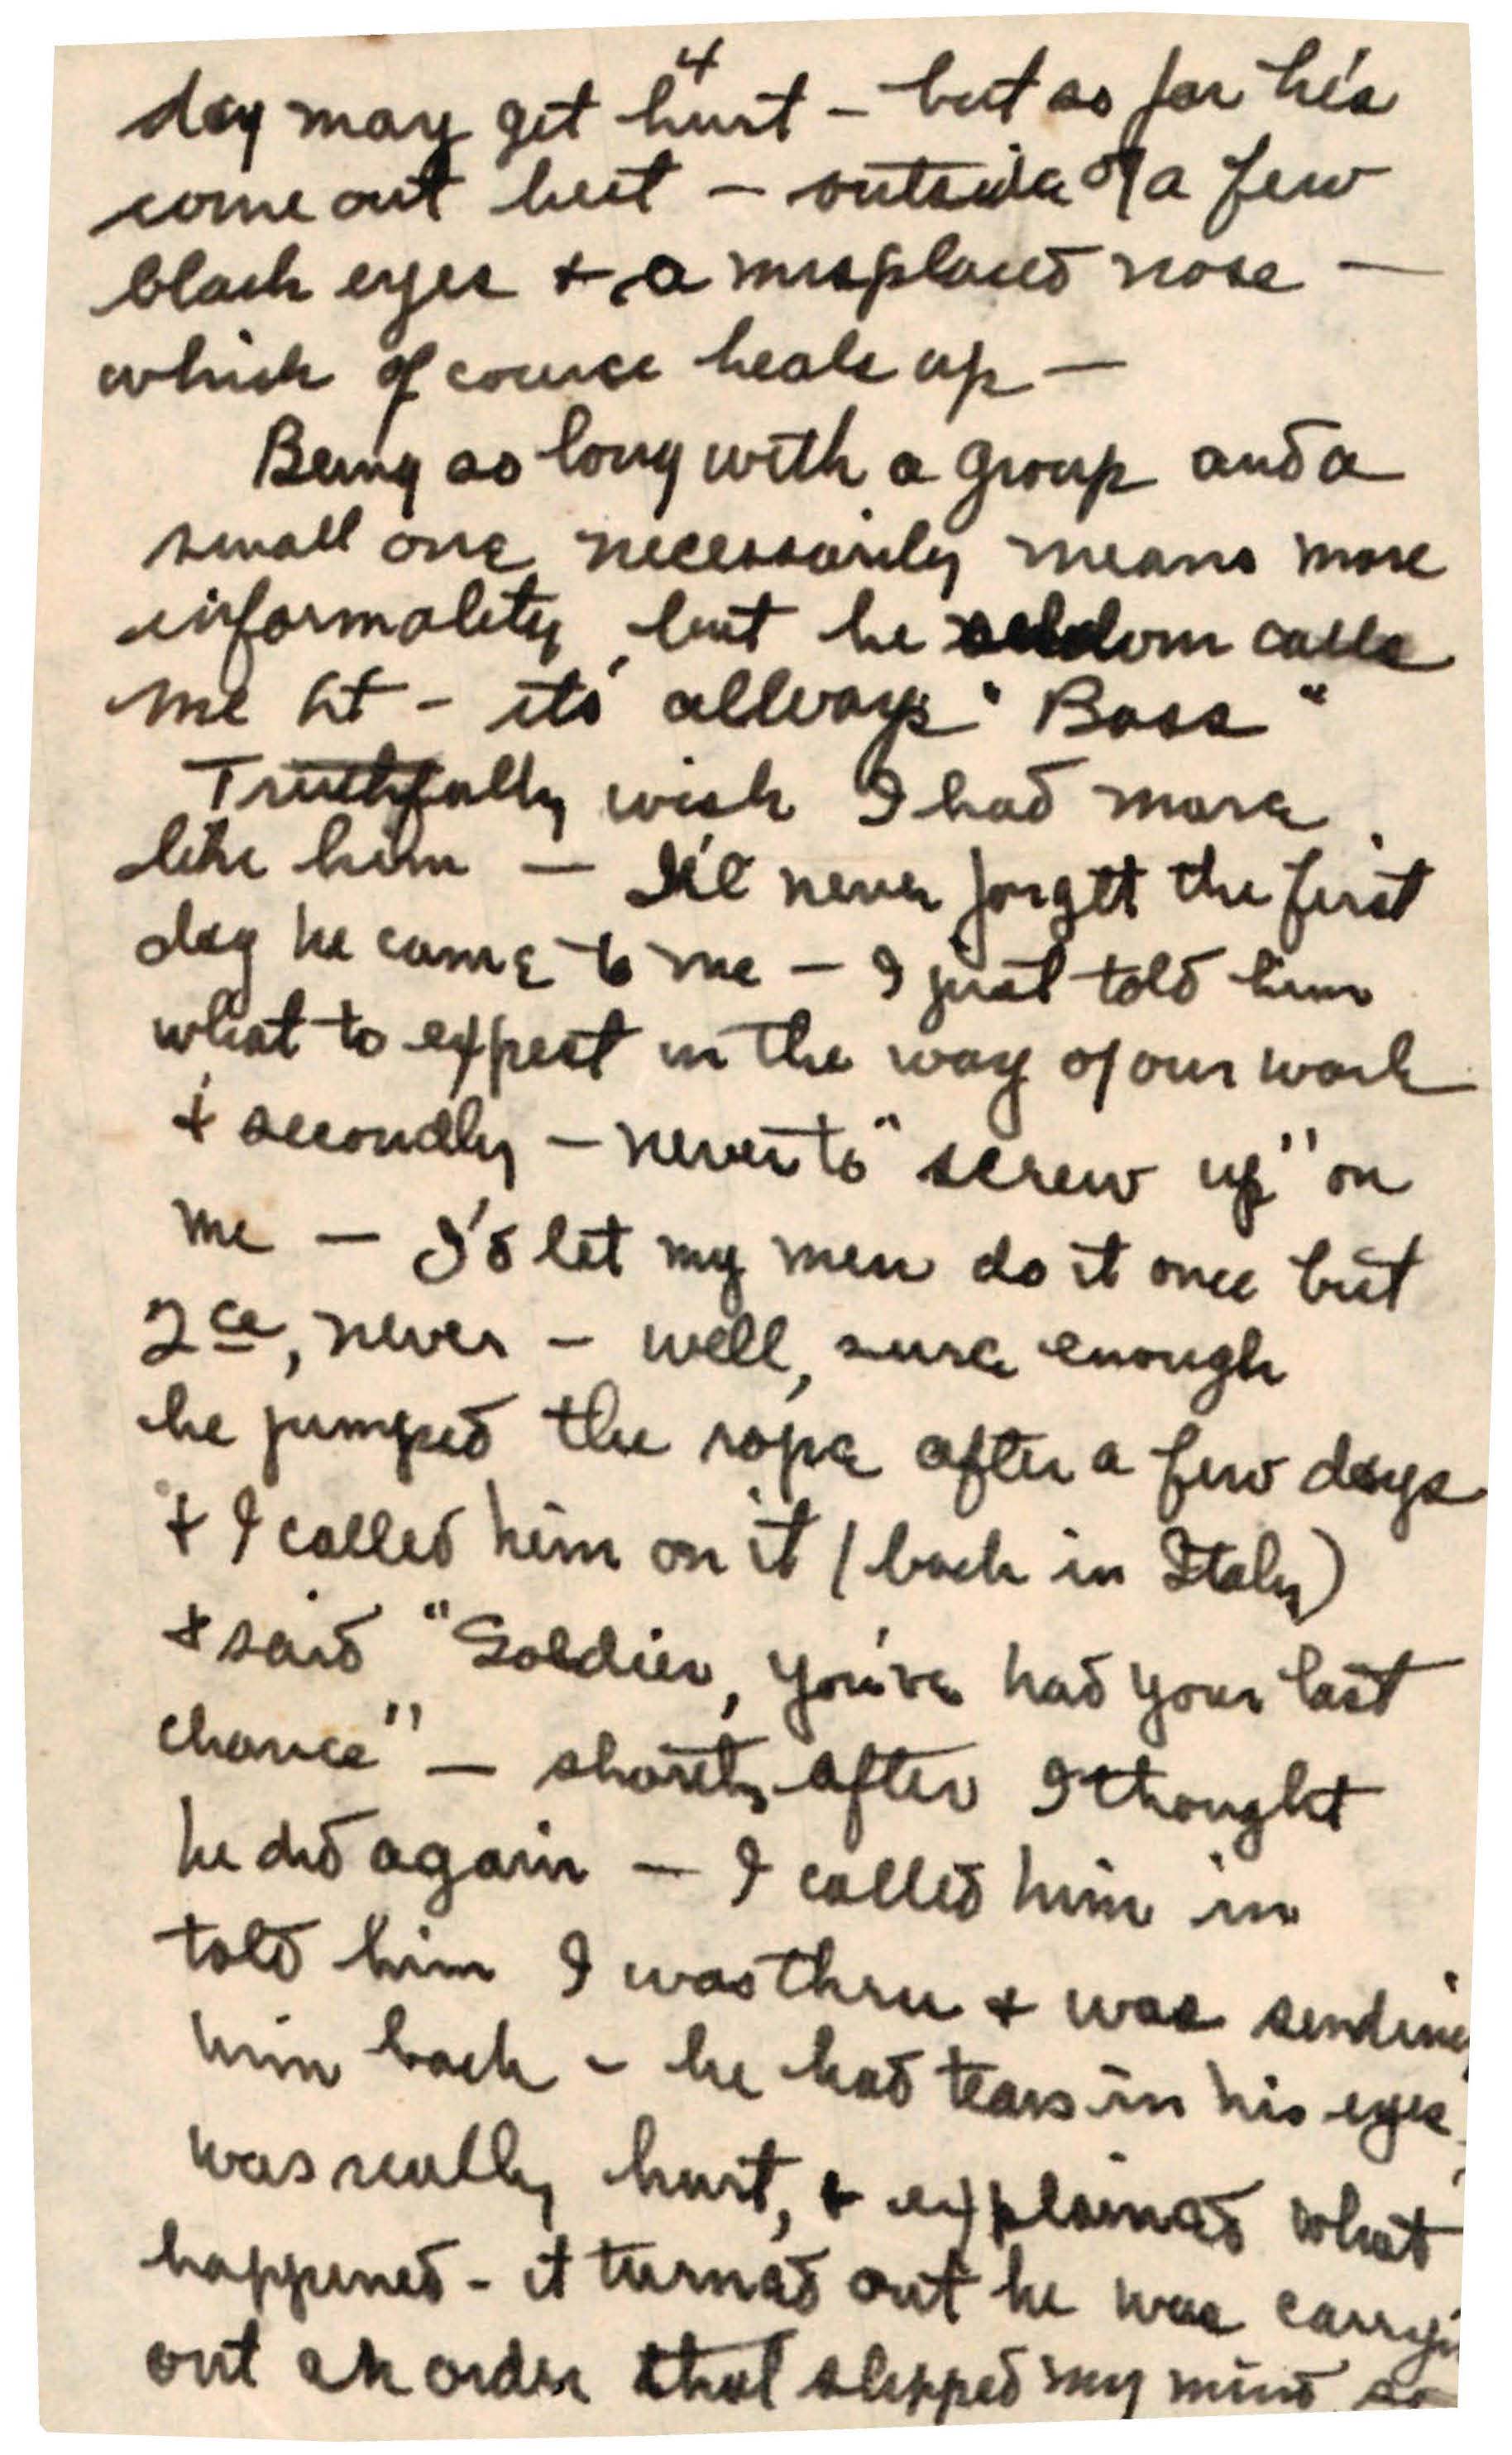 4
day may get hurt - but so far he's
come out best - outside of a few
black eyes + a misplaced nose -
which of course heals up -
Being so long with a group and a
small one necessarily means more
informality, but he seldom calls
me Lt - its allways "Boss"
Truthfully wish I had more
like him - I'll never forgett the first
day he came to me - I just told him
what to expect in the way of our work
+ secondly - never to "screw up" on
me - I'd let my men do it once but
2ce, never - well, sure enough
he jumped the rope after a few days
+ I called him on it (back in Italy)
+ said "Soldier, you've had your last
chance" - shortly after I thought
he did again - I called him in
told him I was thru + was sending
him back - he had tears in his eyes,
was really hurt, + explained what
happened - it turned out he was carryin
out an order that slipped my mind, so